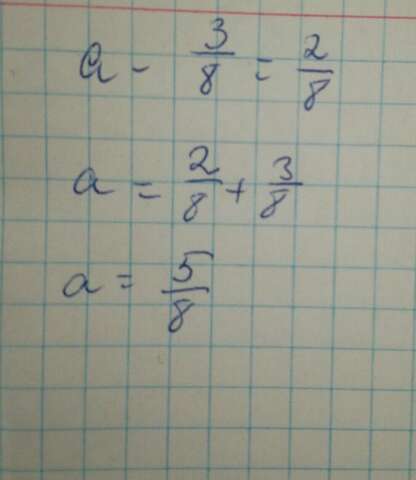 a - 3/8 = 2/8
a = 2/8 + 3/8
a = 5/8